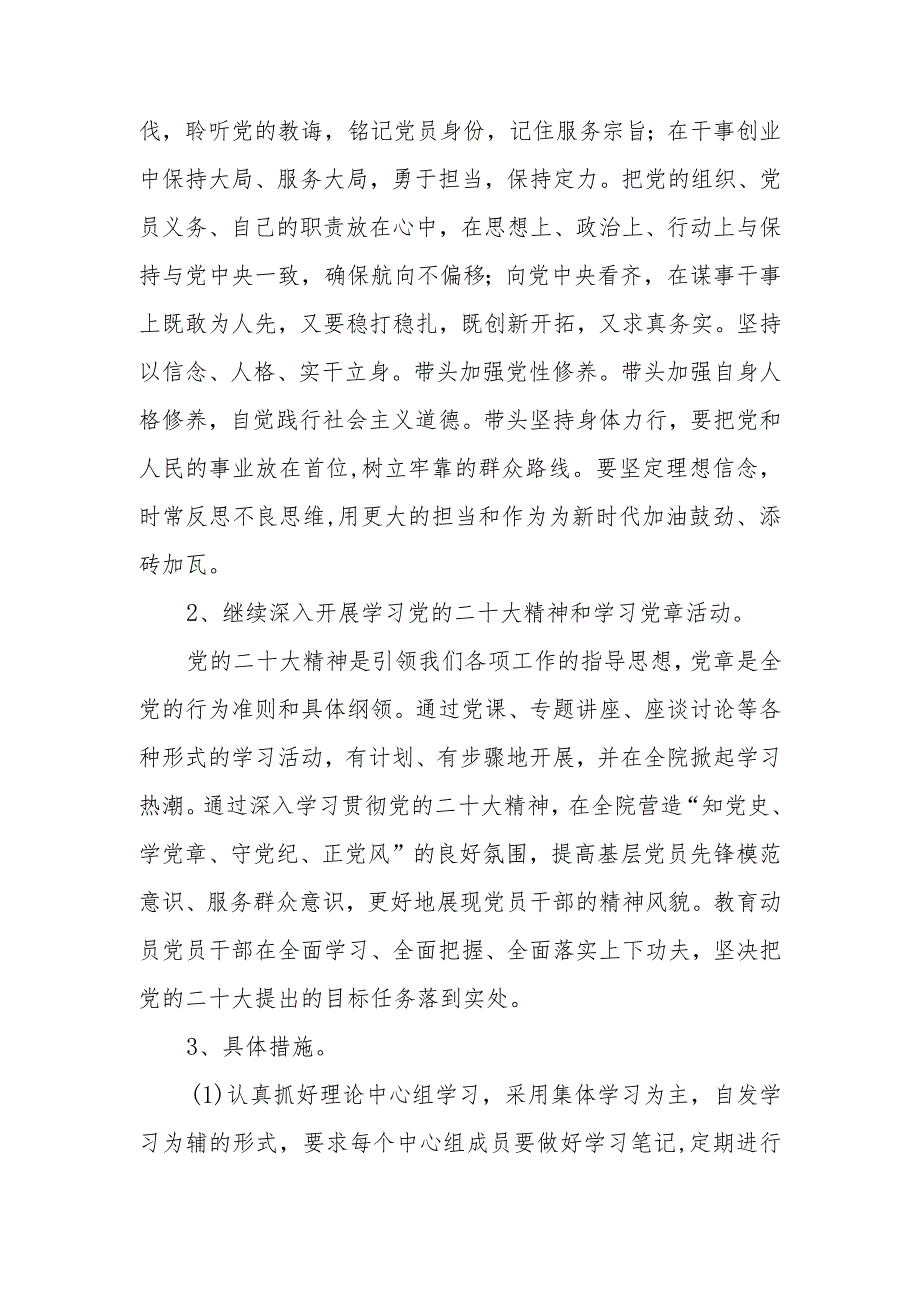 伐，聆听党的教诲，铭记党员身份，记住服务宗旨；在干事创业
中保持大局、服务大局，勇于担当，保持定力。把党的组织、党
员义务、自己的职责放在心中，在思想上、政治上、行动上与保
持与党中央一致，确保航向不偏移；向党中央看齐，在谋事干事
上既敢为人先，又要稳打稳扎，既创新开拓，又求真务实。坚持
以信念、人格、实干立身。带头加强党性修养。带头加强自身人
格修养，自觉践行社会主义道德。带头坚持身体力行，要把党和
人民的事业放在首位,树立牢靠的群众路线。要坚定理想信念，
时常反思不良思维,用更大的担当和作为为新时代加油鼓劲、添
砖加瓦。
2、继续深入开展学习党的二十大精神和学习党章活动。
党的二十大精神是引领我们各项工作的指导思想,党章是全
党的行为准则和具体纲领。通过党课、专题讲座、座谈讨论等各
种形式的学习活动，有计划、有步骤地开展，并在全院掀起学习
热潮。通过深入学习贯彻党的二十大精神，在全院营造“知党史、
学党章、守党纪、正党风”的良好氛围，提高基层党员先锋模范
意识、服务群众意识，更好地展现党员干部的精神风貌。教育动
员党员干部在全面学习、全面把握、全面落实上下功夫，坚决把
党的二十大提出的目标任务落到实处。
3、具体措施。
(1)认真抓好理论中心组学习，采用集体学习为主，自发学
习为辅的形式，要求每个中心组成员要做好学习笔记,定期进行